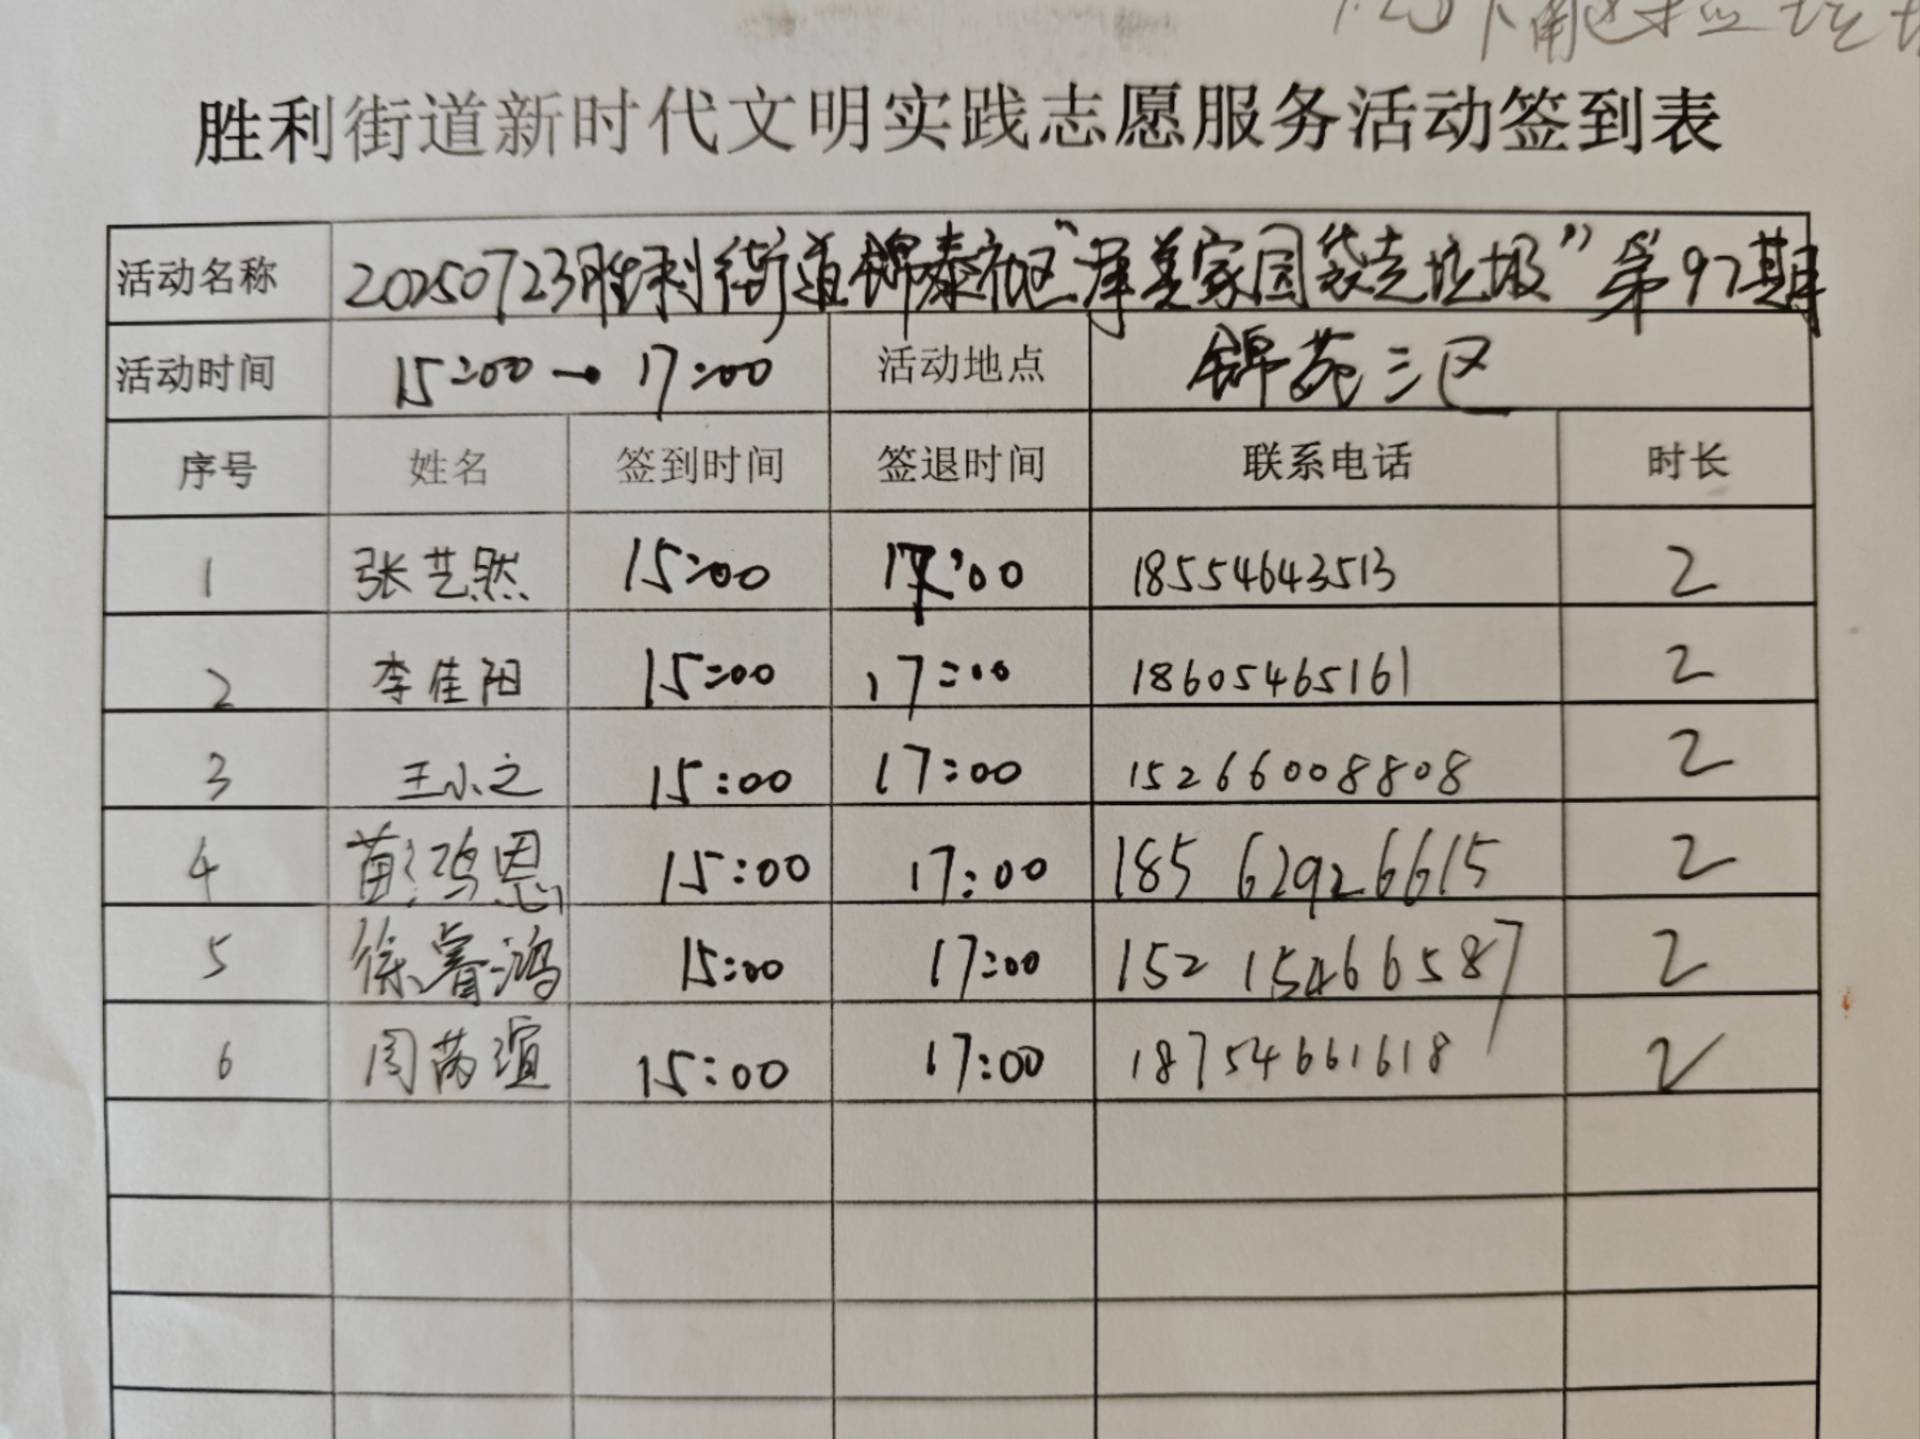 胜利街道新时代文明实践志愿服务活动签到表
活动名称 20250723胜利街道锦泰社区“泽美家园袋走垃圾”第97期
活动时间 15:00→17:00 活动地点 锦苑三区
序号 姓名 签到时间 签退时间 联系电话 时长
1 张艺然 15:00 17:00 18554643513 2
2 李佳阳 15:00 17:00 18605465161 2
3 王小之 15:00 17:00 15266008808 2
4 苗鸿恩 15:00 17:00 18562926615 2
5 徐睿鸿 15:00 17:00 15215466587 2
6 周芮谊 15:00 17:00 18754661618 2